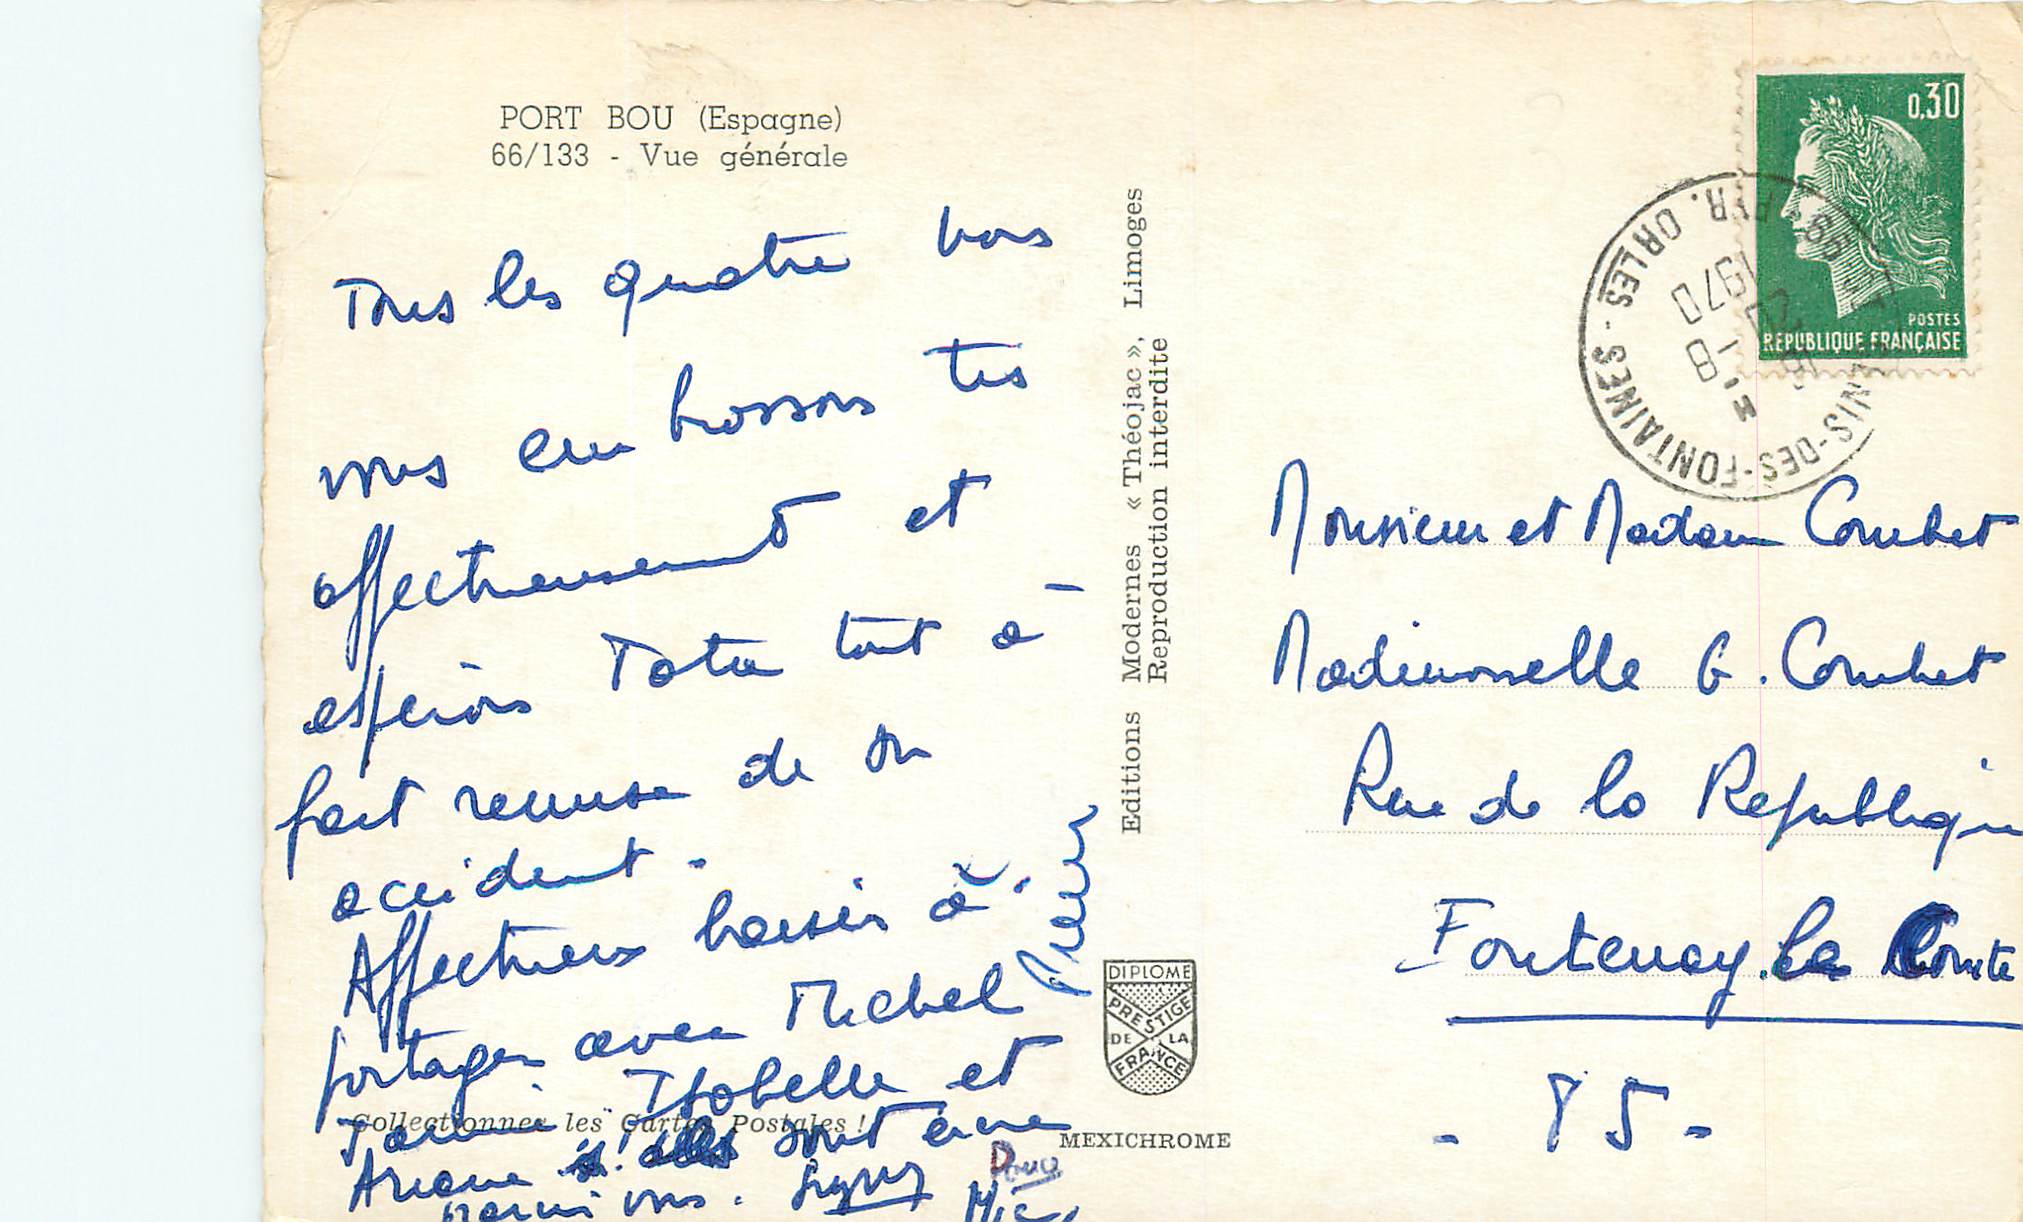 PORT BOU (Espagne)
66/133 - Vue générale
Tous les quatre nous
vous embrassons très
affectueusement et
espérons Tatie tout à -
fait remise de son
accident.
Affectueux baisers à
partager avec Michel
Isabelle et
Ariane s'elles sont encore
parmi vous.
Collectionnez les Cartes Postales !
Editions Modernes « Théojac », Limoges
Reproduction interdite
DIPLOME
PRESTIGE
DE LA
FRANCE
MEXICHROME
0,30
POSTES
REPUBLIQUE FRANÇAISE
-DES-FONTAINES - PYR. ORLES -
1970
Monsieur et Madame Combet
Mademoiselle G. Combet
Rue de la République
Fontenay le Comte
- 85 -